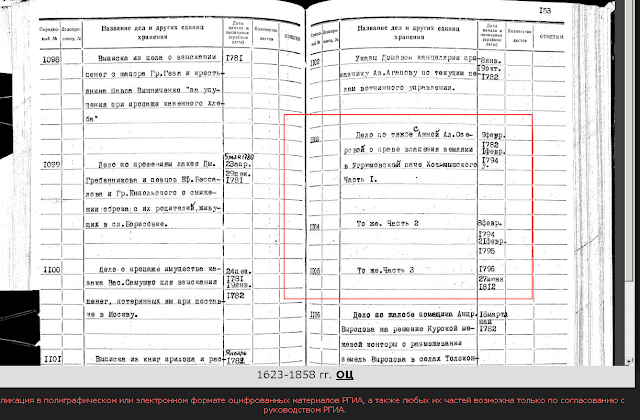 153
Порядковый №
Делопроизвод. №
Название дел и других единиц
хранения
Даты
начала и
окончания
(крайние
даты)
Количество
листов
ОТМЕТКИ
1098
Выписка из дела о взыскании
денег с майора Гр.Геза и кресть-
янина Павла Винниченко "за упу-
щения при продаже казенного хле-
ба"
1781
1099
Дело по прошениям лакея Дм.
Гребенникова и певцов
лова и Гр.
о сниже-
нии оброка с их родителей, живу-
щих в сл.Борисовке.
5 мая 1780
23апр.
29дек.
1781
1100
Дело о продаже имущества ка-
зака Вас.Самушко для взыскания
денег, потерянных им при постав-
ке в Москву.
24дек.
1781
1782
1101
Выписка из книг прихода и рас-
Январь
1782
Название дел и других единиц
хранения
Даты
начала и
окончания
(крайние
даты)
Количество
листов
ОТМЕТКИ
1102
Указы Домовой канцелярии при-
казчику Ал.Агапову по текущим де-
лам вотчинного управления.
8янв.
19окт.
1782
1103
Дело по тяжбе с Анной Ал.Озе-
ровой о праве владения землями
в Угримовской даче Хотмышского
Часть I.
9февр.
1782
1794
1104
То же. Часть 2
8февр.
1794
21февр.
1795
1105
То же.Часть 3
1796
27июня
1812
1106
Дело по жалобе помещика Андр.
Выродова на решение Курской ме-
жевой конторы о размежевании
земель Выродова в селах Толокон-
16марта
май
1782
1623-1858 гг. ОЦ
ликация в полиграфическом или электронном формате оцифрованных материалов РГИА, а также любых их частей возможна только по согласованию с
руководством РГИА.